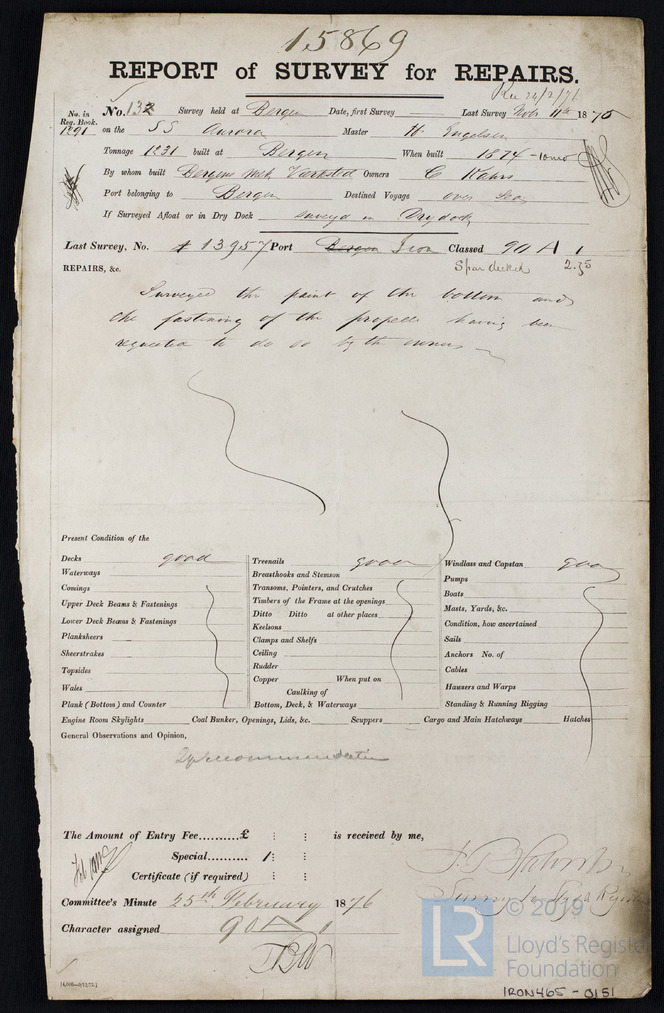 15869
REPORT of SURVEY for REPAIRS.
Rec 24/2/76
No. in Reg. Book. No. 132 Survey held at Bergen Date, first Survey Last Survey Feb. 11th 1876
1291 on the SS Aurora Master H. Engelsen
Tonnage 1231 built at Bergen When built 1874 - 10mo
By whom built Bergens Mek Værksted Owners C Kahrs
Port belonging to Bergen Destined Voyage over Sea
If Surveyed Afloat or in Dry Dock surveyed in Dry dock
Last Survey, No. 13957 Port Bergen Iron Classed 90 A 1
Spar decked 2.75
REPAIRS, &c.
Surveyed the paint of the bottom and
the fastening of the propeller having been
requested to do so by the owners
Present Condition of the
Decks good Treenails good Windlass and Capstan good
Waterways Breasthooks and Stemson Pumps
Comings Transoms, Pointers, and Crutches Boats
Upper Deck Beams & Fastenings Timbers of the Frame at the openings Masts, Yards, &c.
Lower Deck Beams & Fastenings Ditto Ditto at other places Condition, how ascertained
Planksheers Keelsons Sails
Sheerstrakes Clamps and Shelfs Anchors No. of
Topsides Ceiling Cables
Wales Rudder Hawsers and Warps
Plank (Bottom) and Counter Copper When put on Standing & Running Rigging
Caulking of
Bottom, Deck, & Waterways
Engine Room Skylights Coal Bunker, Openings, Lids, &c. Scuppers Cargo and Main Hatchways Hatches
General Observations and Opinion,
The Amount of Entry Fee..........£ : : is received by me,
Special.......... 1 : :
Certificate (if required) : :
Committee's Minute 25th February 1876
Character assigned 90 A 1
LR © 2019
Lloyd's Register
Foundation
IRON465 - 0151